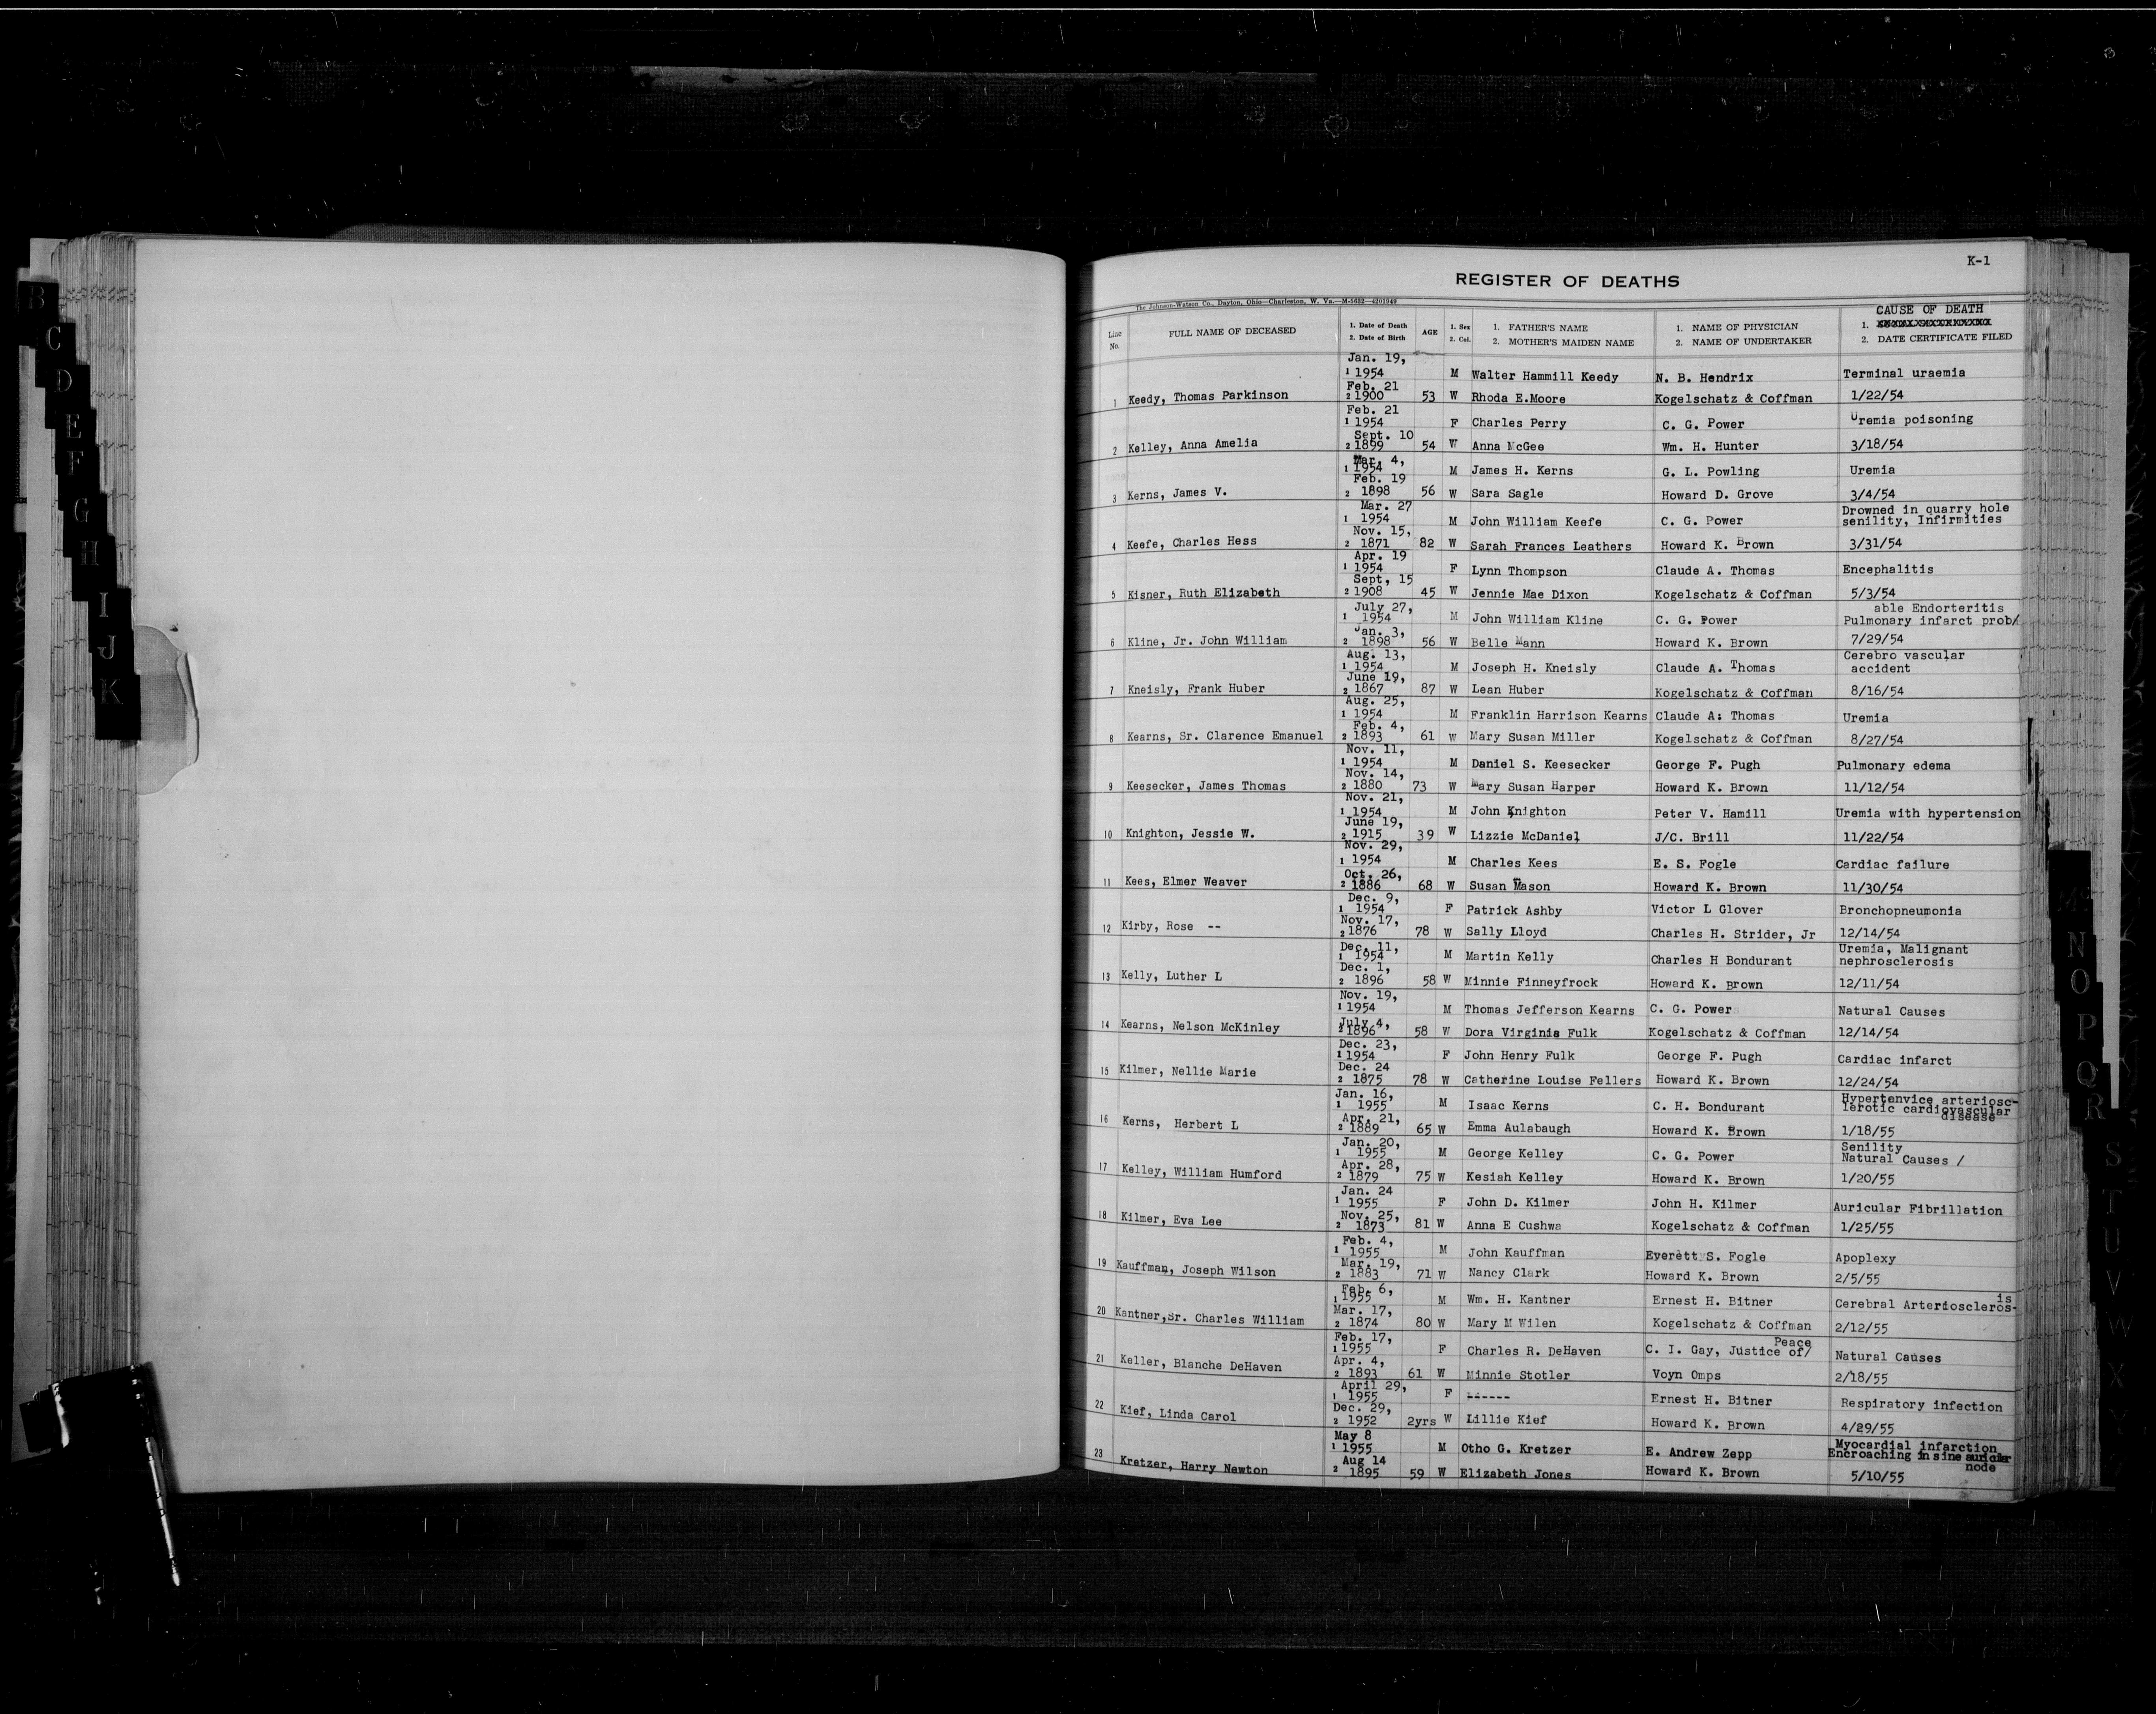 K-1
REGISTER OF DEATHS
The Johnson-Watson Co., Dayton, Ohio—Charleston, W. Va.—M-5632—4201949
Line No. FULL NAME OF DECEASED 1. Date of Death 2. Date of Birth AGE 1. Sex 2. Col. 1. FATHER'S NAME 2. MOTHER'S MAIDEN NAME 1. NAME OF PHYSICIAN 2. NAME OF UNDERTAKER CAUSE OF DEATH 1. 2. DATE CERTIFICATE FILED
Jan. 19,
1 1954 M Walter Hammill Keedy N. B. Hendrix Terminal uraemia
Feb. 21
1 Keedy, Thomas Parkinson 2 1900 53 W Rhoda E.Moore Kogelschatz & Coffman 1/22/54
Feb. 21
1 1954 F Charles Perry C. G. Power Uremia poisoning
Sept. 10
2 Kelley, Anna Amelia 2 1899 54 W Anna McGee Wm. H. Hunter 3/18/54
Mar. 4,
1 1954 M James H. Kerns G. L. Powling Uremia
Feb. 19
3 Kerns, James V. 2 1898 56 W Sara Sagle Howard D. Grove 3/4/54
Mar. 27 Drowned in quarry hole
1 1954 M John William Keefe C. G. Power senility, Infirmities
Nov. 15,
4 Keefe, Charles Hess 2 1871 82 W Sarah Frances Leathers Howard K. Brown 3/31/54
Apr. 19
1 1954 F Lynn Thompson Claude A. Thomas Encephalitis
Sept, 15
5 Kisner, Ruth Elizabeth 2 1908 45 W Jennie Mae Dixon Kogelschatz & Coffman 5/3/54
July 27, able Endorteritis
1 1954 M John William Kline C. G. Power Pulmonary infarct prob/
Jan. 3,
6 Kline, Jr. John William 2 1898 56 W Belle Mann Howard K. Brown 7/29/54
Aug. 13, Cerebro vascular
1 1954 M Joseph H. Kneisly Claude A. Thomas accident
June 19,
7 Kneisly, Frank Huber 2 1867 87 W Lean Huber Kogelschatz & Coffman 8/16/54
Aug. 25,
1 1954 M Franklin Harrison Kearns Claude A: Thomas Uremia
Feb. 4,
8 Kearns, Sr. Clarence Emanuel 2 1893 61 W Mary Susan Miller Kogelschatz & Coffman 8/27/54
Nov. 11,
1 1954 M Daniel S. Keesecker George F. Pugh Pulmonary edema
Nov. 14,
9 Keesecker, James Thomas 2 1880 73 W Mary Susan Harper Howard K. Brown 11/12/54
Nov. 21,
1 1954 M John Knighton Peter V. Hamill Uremia with hypertension
June 19,
10 Knighton, Jessie W. 2 1915 39 W Lizzie McDaniel J/C. Brill 11/22/54
Nov. 29,
1 1954 M Charles Kees E. S. Fogle Cardiac failure
Oct. 26,
11 Kees, Elmer Weaver 2 1886 68 W Susan Mason Howard K. Brown 11/30/54
Dec. 9,
1 1954 F Patrick Ashby Victor L Glover Bronchopneumonia
Nov. 17,
12 Kirby, Rose -- 2 1876 78 W Sally Lloyd Charles H. Strider, Jr 12/14/54
Dec. 11, Uremia, Malignant
1 1954 M Martin Kelly Charles H Bondurant nephrosclerosis
Dec. 1,
13 Kelly, Luther L 2 1896 58 W Minnie Finneyfrock Howard K. Brown 12/11/54
Nov. 19,
1 1954 M Thomas Jefferson Kearns C. G. Power Natural Causes
July 4,
14 Kearns, Nelson McKinley 2 1896 58 W Dora Virginia Fulk Kogelschatz & Coffman 12/14/54
Dec. 23,
1 1954 F John Henry Fulk George F. Pugh Cardiac infarct
Dec. 24
15 Kilmer, Nellie Marie 2 1875 78 W Catherine Louise Fellers Howard K. Brown 12/24/54
Jan. 16, Hypertenvice arteriosc-
1 1955 M Isaac Kerns C. H. Bondurant lerotic cardiovascular
Apr. 21, disease
16 Kerns, Herbert L 2 1889 65 W Emma Aulabaugh Howard K. Brown 1/18/55
Jan. 20, Senility
1 1955 M George Kelley C. G. Power Natural Causes /
Apr. 28,
17 Kelley, William Humford 2 1879 75 W Kesiah Kelley Howard K. Brown 1/20/55
Jan. 24
1 1955 F John D. Kilmer John H. Kilmer Auricular Fibrillation
Nov. 25,
18 Kilmer, Eva Lee 2 1873 81 W Anna E Cushwa Kogelschatz & Coffman 1/25/55
Feb. 4,
1 1955 M John Kauffman Everett S. Fogle Apoplexy
Mar. 19,
19 Kauffman, Joseph Wilson 2 1883 71 W Nancy Clark Howard K. Brown 2/5/55
Feb. 6, is
1 1955 M Wm. H. Kantner Ernest H. Bitner Cerebral Arterioscleros-
Mar. 17,
20 Kantner,Sr. Charles William 2 1874 80 W Mary M Wilen Kogelschatz & Coffman 2/12/55
Feb. 17, Peace
1 1955 F Charles R. DeHaven C. I. Gay, Justice of/ Natural Causes
Apr. 4,
21 Keller, Blanche DeHaven 2 1893 61 W Minnie Stotler Voyn Omps 2/18/55
April 29,
1 1955 F ------ Ernest H. Bitner Respiratory infection
Dec. 29,
22 Kief, Linda Carol 2 1952 2yrs W Lillie Kief Howard K. Brown 4/29/55
May 8 Myocardial infarction
1 1955 M Otho G. Kretzer E. Andrew Zepp Encroaching in sine auricular
Aug 14 node
23 Kretzer, Harry Newton 2 1895 59 W Elizabeth Jones Howard K. Brown 5/10/55
B
C
D
E
F
G
H
I
J
K
N
O
P
Q
R
S
T
U
V
W
X